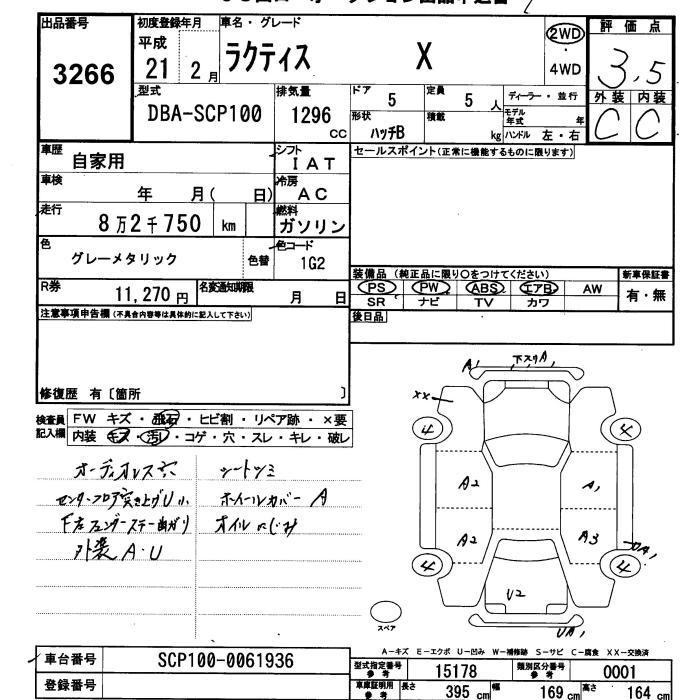 出品番号 初度登録年月 車名・グレード 評価点
3266 平成 21 2月 ラクティス X 2WD 4WD 3.5
型式 排気量 ドア 5 定員 5人 ディーラー・並行 外装 内装
DBA-SCP100 1296 cc 形状 ハッチB 積載 kg モデル年式 年 ハンドル 左・右 C C
車歴 自家用 シフト IAT セールスポイント(正常に機能するものに限ります)
車検 年 月( 日) 冷房 AC
走行 8万2千750 km 燃料 ガソリン
色 グレーメタリック 色替 色コード 1G2
装備品 (純正品に限り○をつけてください) 新車保証書
R券 11,270円 名変通知期限 月 日 PS PW ABS エアB AW 有・無
SR ナビ TV カワ
注意事項申告欄(不具合内容等は具体的に記入して下さい) 後日品
修復歴 有〔箇所 〕
検査員記入欄 FW キズ・飛石・ヒビ割・リペア跡・×要
内装 キズ・汚レ・コゲ・穴・スレ・キレ・破レ
オーディオレス穴 シートシミ
センターフロア突き上げU小 ホイールカバーA
F左フェンダーステー曲がり オイルにじみ
外装A・U
A1 下スリA1
XX
4 4
A2 A1
A2 A3
4 4
U2
UA1
スペア
A-キズ E-エクボ U-凹み W-補修跡 S-サビ C-腐食 XX-交換済
車台番号 SCP100-0061936 型式指定番号 参考 15178 類別区分番号 参考 0001
登録番号 車庫証明用 参考 長さ 395cm 幅 169cm 高さ 164cm